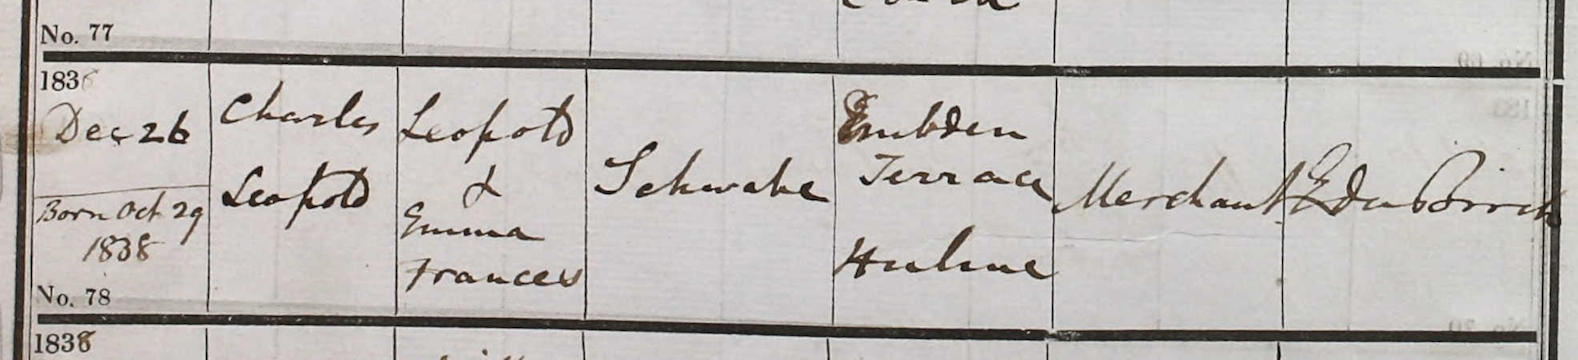 No. 77
1838
Dec 26
Born Oct 29
1838
No. 78
Charles
Leopold
Leopold
&
Emma
Frances
Schwabe
Embden
Terrace
Hulme
Merchant
Edw Birch
1838